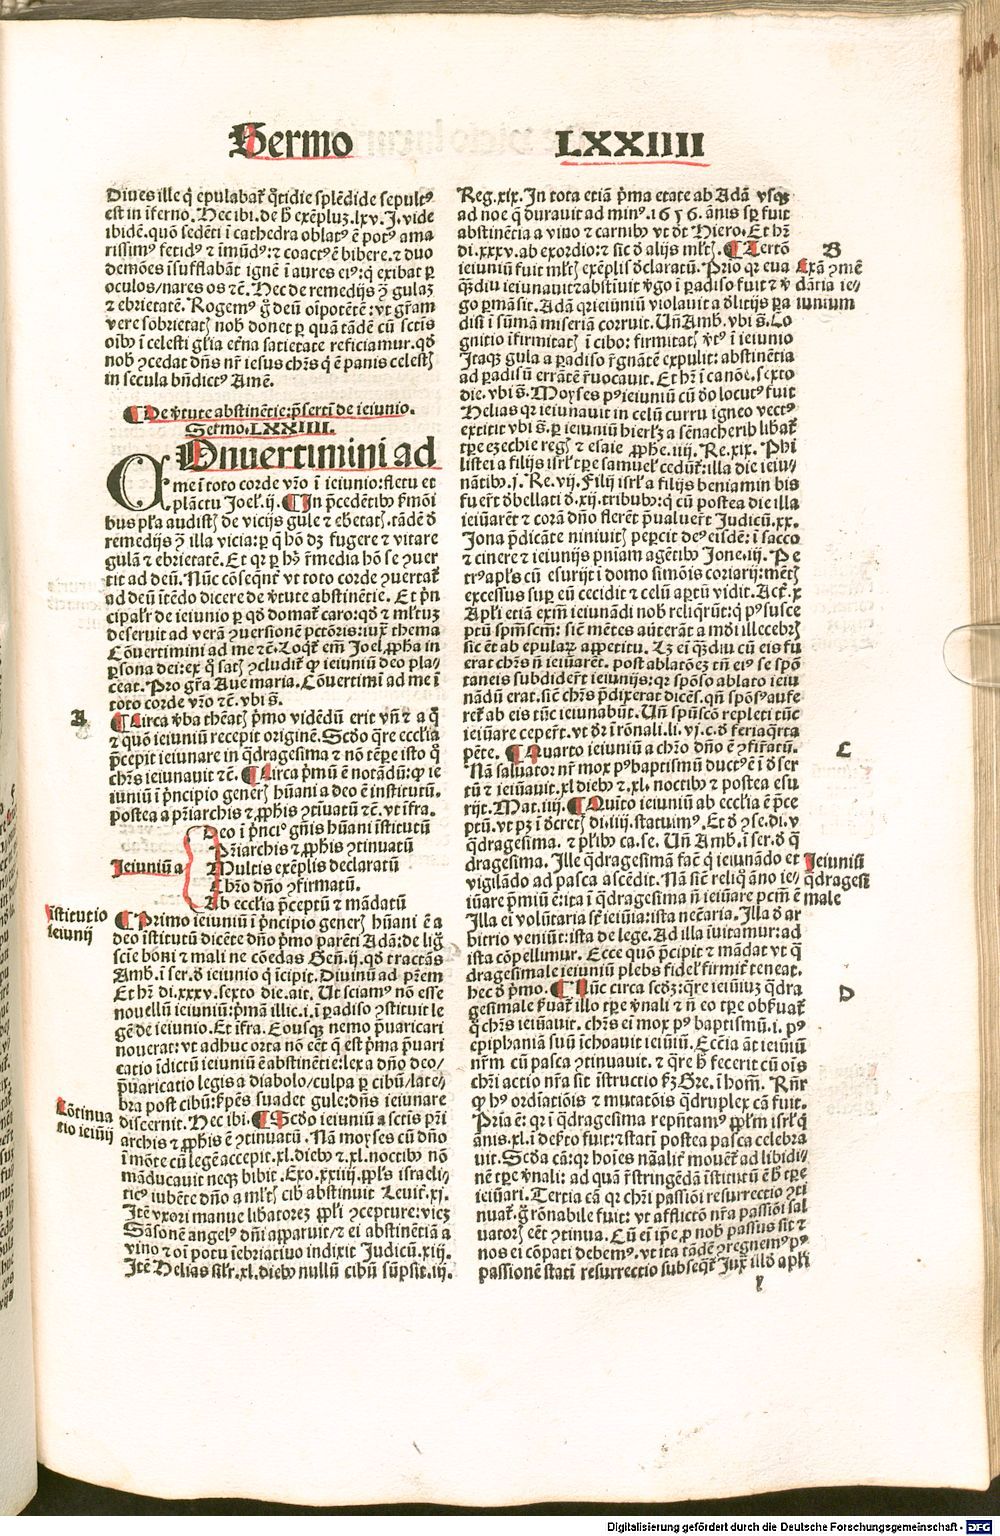 Sermo LXXIIII
Diues ille q̄ epulabat̄ q̄tidie splēdide sepultꝰ
est in īferno. Hec ibi. de h̄ exēpluꝫ .lxv. J. vide
ibidē. quō sedēti ī cathedra oblatꝰ ē potꝰ ama
rissimꝰ fetidꝰ ⁊ īmūdꝰ: ⁊ coactꝰ ē bibere. ⁊ duo
demōes īsufflabāt ignē ī aures eiꝰ: q̄ exibat ꝑ
oculos/nares os ⁊c̄. Hec de remedijs ꝯ̄ gulaꝫ
⁊ ebrietatē. Rogemꝰ g̊ deū oīpotētē: vt gr̄am
vere sobrietatꝭ nob̄ donet ꝑ quā tādē cū sctīs
oībꝰ ī celesti gl̄ia et̄na satietate reficiamur. qđ
nob̄ ꝯcedat dn̄s nr̄ iesus chr̄s q̄ ē panis celestꝭ
in secula bn̄dictꝰ Amē.
¶ De v̄tute abstinētie: p̄sertī de ieiunio.
Sermo. LXXIIII.
COnuertimini ad
me ī toto corde vr̄o ī ieiunio: fletu et
plāctu Joel̄. ij. ¶ In p̄cedētibꝰ ẜmōi
bus pl̄a audistꝭ de vicijs gule ⁊ ebetatꝭ. tādē đ
remedijs ꝯ̄ illa vicia: ꝑ q̄ hō dꝫ fugere ⁊ vitare
gulā ⁊ ebrietatē. Et qꝛ ꝑ h̄ r̄media hō se ꝯuer
tit ad deū. Nūc cōseqn̄t̄ vt toto corde ꝯuertat̄
ad deū ītēdo dicere de v̄tute abstinētie. Et p̄n
cipal̄r de ieiunio ꝑ qđ domat̄ caro: qđ ⁊ ml̄tuꝫ
deseruit ad verā ꝯuersionē pctōris: iux̄ thema
Cōuertimini ad me ⁊c̄. Loqt̄ em̄ Joel ꝓph̄a in
ꝑsona dei: ex q̄ satꝭ ꝯcludit̄ ꝙ ieiuniū deo pla/
ceat. Pro gr̄a Aue maria. Cōuertimī ad me ī
toto corde vr̄o ⁊c̄. vbi s̄.
A
¶ Circa v̄ba theātꝭ p̄mo vidēdū erit vn̄ ⁊ a q̄
⁊ quō ieiuniū recepit originē. Scđo qre ecclīa
p̄cepit ieiunare in q̄dragesima ⁊ nō tēꝑe isto q̄
chr̄s ieiunauit ⁊c̄. ¶ Circa p̄mū ē notādū: ꝙ ie
iuniū ī p̄ncipio generꝭ hūani a deo ē institutū.
postea a pr̄iarchis ⁊ ꝓphis ꝯtiuatū ⁊c̄. vt īfra.
Ieiuniū a
Deo ī p̄ncīº gn̄is hūani īstitutū
Pr̄iarchis ⁊ ꝓphis ꝯtinuatū
Multis exēplis declaratū
Chr̄o dn̄o ꝯfirmatū.
Ab ecclīa p̄ceptū ⁊ mādatū
īstitutio
ieiunij
¶ Primo ieiuniū ī p̄ncipio generꝭ hūani ē a
deo īstitutū dicēte dn̄o p̄mo parēti Adā: de lig̊
scīe boni ⁊ mali ne cōedas Gen̄. ij. qđ tractās
Amb. ī ser. đ ieiunio q̄ īcipit. Diuinū ad pr̄em
Et hr̄ di. xxxv. sexto die. ait. Ut sciamꝰ nō esse
nouellū ieiuniū: p̄mā illic. i. ī ꝑadiso ꝯstituit le
gē de ieiunio. Et īfra. Eousqꝫ nemo p̄uaricari
nouerat: vt adhuc orta nō eēt q̄ est p̄ma p̄uari
catio īdictū ieiuniū ē abstinētie: lex a dn̄o deo/
p̄uaricatio legis a diabolo/culpa ꝑ cibū/late/
bra post cibū: ẜpēs suadet gule: dn̄s ieiunare
discernit. Hec ibi. ¶ Scđo ieiuniū a sctīs pr̄i
archis ⁊ ꝓphis ē ꝯtinuatū. Nā moyses cū dn̄o
ī mōte cū legē accepit .xl. diebꝰ ⁊ .xl. noctibꝰ nō
māducauit neqꝫ bibit. Exo. xxiiij. ppl̄s israeli-
ticꝰ iubēte dn̄o a ml̄tꝭ cib̄ abstinuit Leuit̄. xj.
Itē vxori manue libatoreꝫ ppl̄i ꝯcepture: vicꝫ
Sāsonē angelꝰ dn̄i apparuit/⁊ ei abstinētiā a
vino ⁊ oī potu īebriatiuo indixit Judicū. xiij.
Itē Helias sil̄r .xl. diebꝰ nullū cibū sūpsit. iij.
Cōtinua
tio ieiūij
Reg. xix. In tota etiā p̄ma etate ab Adā vsqꝫ
ad noe q̄ durauit ad minꝰ .1656. ānis sꝑ fuit
abstinētia a vino ⁊ carnibꝰ vt đt Hiero. Et hr̄
di. xxxv. ab exordio: ⁊ sic đ alijs ml̄tꝭ. ¶ Tertō
ieiuniū fuit ml̄tꝭ exēplis đclaratū. Prio qꝛ eua
q̄ꝫdiu ieiunauit ⁊ abstiuit v̄go ī ꝑadiso fuit ⁊ v̄
go ꝑmāsit. Adā qꝛ ieiuniū violauit a đlitijs ꝑa
disi ī sūmā miseriā corruit. Un̄ Amb. vbi s̄. Co
gnitio īfirmitatꝭ ī cibo: firmitatꝭ v̄tꝰ ī ieiunio
Itaqꝫ gula a ꝑadiso r̄gnātē expulit: abstinētia
ad ꝑadisū errātē r̄uocauit. Et hr̄ ī canōe. sexto
die. vbi s̄. Moyses pꝰ ieiuniū cū đo locutꝰ fuit
Helias qꝛ ieiunauit in celū curru igneo vectꝰ
extitit vbi s̄. ꝑ ieiuniū hierlꝫ a sēnacherib libat̄
tꝑe ezechie regꝭ ⁊ esaie ꝓphe. iiij. Re. xix. Phi
listei a filijs isrl̄ tꝑe samuel̄ cedūt̄: illa die ieiu/
nātibꝰ. j. Re. vij. Filij isrl̄ a filijs beniamin bis
fuer̄t đbellati đ .xij. tribubꝰ: q̄ cū postea die illa
ieiūarēt ⁊ corā dn̄o flerēt p̄ualuer̄t Judicū. xx.
Jona p̄dicāte niniuitꝭ peꝑcit deꝰ eisdē: ī sacco
⁊ cinere ⁊ ieiunijs pniam agētibꝰ Jone. iij. Pe
trꝰ apl̄s cū esurijt ī domo simōis coriarij: mētꝭ
excessus suꝑ eū cecidit ⁊ celū aꝑtū vidit. Act̄. x
Apl̄i etiā exm̄ ieiunādi nob̄ reliqr̄ūt: q̄ pꝰ susce
ptū spm̄scm̄: sic̄ mētes aūterāt a mōi illecebrꝭ
sic ēt ab epulaꝝ appetitu. Lꝫ ei q̄ꝫdiu cū eis fu
erat chr̄s n̄ ieiūarēt. post ablatōeꝫ tn̄ eiꝰ se spō
taneis subdider̄t ieiunijs: qꝛ spōso ablato ieiu
nādū erat. sic̄ chr̄s p̄dixerat dicēs. qn̄ spōsꝰ aufe
ret̄ ab eis tūc ieiunabūt. Un̄ spūscō repleti tūc
ieiūare ceper̄t. vt đr ī rōnali. li. vj. c. đ feria qrta
pēte. ¶ Quarto ieiuniū a chr̄o dn̄o ē ꝯfir̄atū.
Nā saluator nr̄ mox pꝰ baptismū ductꝰ ē ī đser
tū ⁊ ieiūauit .xl. diebꝰ ⁊ .xl. noctibꝰ ⁊ postea esu
rijt. Mat. iiij. ¶ Quīto ieiuniū ab ecclīa ē p̄ce
ptū. vt pꝫ ī đcretꝭ di. iiij. statuimꝰ. Et đ ꝯse. di. v
q̄dragesima. ⁊ pl̄ibꝰ ca. se. Un̄ Amb. ī ser. đ q̄
dragesima. Ille q̄dragesimā faēt q̄ ieiunādo et
vigilādo ad pasca ascēdit. Nā sic̄ reliq̄ āno ie/
iūare p̄miū ē: ita ī q̄dragesima n̄ ieiūare pctm̄ ē
Illa ei volūtaria sr̄ ieiūia: ista nec̄aria. Illa đ ar
bitrio veniūt: ista de lege. Ad illa īuitamur: ad
ista cōpellimur. Ecce quō p̄cipit ⁊ mādat vt q̄
dragesimale ieiuniū plebs fidel̄ firmit̄ teneat.
hec đ p̄mo. ¶ Nūc circa scđꝫ: qre ieiūiuꝫ q̄dra
gesimale ẜuat̄ illo tꝑe v̄nali ⁊ n̄ eo tꝑe obẜuat̄
q̄ chr̄s ieiūauit. chr̄s ei mox pꝰ baptismū. i. pꝰ
epiphaniā suū īchoauit ieiūiū. Eccīa āt ieiūiū
nr̄m cū pasca ꝯtinuauit. ⁊ qre h̄ fecerit cū oīs
chr̄i actio nr̄a sit īstructio ẜꝫ Gre. ī hom̄. Rn̄r
ꝙ hꝰ ordīatiōis ⁊ mutatōis q̄druplex cā fuit.
Pria ē: qꝛ ī q̄dragesima repn̄tamꝰ ppl̄m isrl̄ q̄
ānis .xl. ī deẜto fuit: ⁊ statī postea pasca celebra
uit. Scđa cā: qꝛ hoīes nāalit̄ mouēt̄ ad libidi/
nē tꝑe v̄nali: ad quā r̄stringēdā īstitutū ē h̄ tꝑe
ieiūari. Tertia cā qꝛ chr̄i passiōi resurrectio ꝯti
nuat̄. g̊ rōnabile fuit: vt afflictō nr̄a passiōi sal
uatorꝭ eēt ꝯtinua. Cū ei ip̄e ꝓ nob̄ passus sit ⁊
nos ei cōpati debemꝰ. vt ita tādē ꝯregnemꝰ pꝰ
passionē statī resurrectio subseqt̄ Jux̄ illđ apl̄i
y
B
Exā ꝯmē
dātia ie/
iunium
C
Ieiuniū
q̄dragesi
male
D
Digitalisierung gefördert durch die Deutsche Forschungsgemeinschaft - DFG